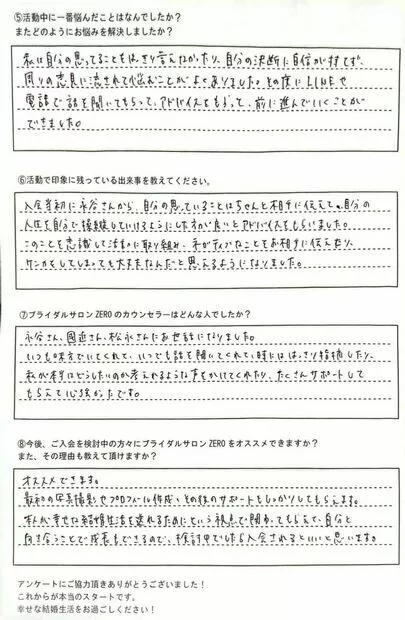 ⑤活動中に一番悩んだことはなんでしたか？
またどのようにお悩みを解決しましたか？
私は自分の思ってることをはっきり言えなかったり、自分の決断に自信が持てず、
周りの意見に流されて悩むことがよくありました。その度にLINEや
電話で話を聞いてもらって、アドバイスをもらって、前に進んでいくことが
できました。
⑥活動で印象に残っている出来事を教えてください。
入会当初に永谷さんから、自分の思っていることはちゃんと相手に伝えて、自分の
人生を自分で操縦していけるようにした方が良いとアドバイスをもらいました。
このことを意識して活動に取り組み、ネガティブなことをお相手に伝えたり、
ケンカをしてしまっても大丈夫なんだと思えるようになりました。
⑦ブライダルサロンZEROのカウンセラーはどんな人でしたか？
永谷さん、國近さん、松永さんにお世話になりました。
いつも味方でいてくれて、いつでも話を聞いてくれて、時にははっきり指摘したり、
私が本当はどうしたいのか考えれるような声をかけてくれたり、たくさんサポートして
もらえて心強かったです。
⑧今後、ご入会を検討中の方々にブライダルサロンZEROをオススメできますか？
また、その理由も教えて頂けますか？
オススメできます。
最初の写真撮影やプロフィール作成、その後のサポートもしっかりしてもらえます。
本人が幸せな結婚生活を送れるためにという視点で関わってもらえて、自分と
向き合うことで成長もできるので、検討中でしたら入会されるといいと思います。
アンケートにご協力頂きありがとうございました！
これからが本当のスタートです。
幸せな結婚生活をお過ごしください！